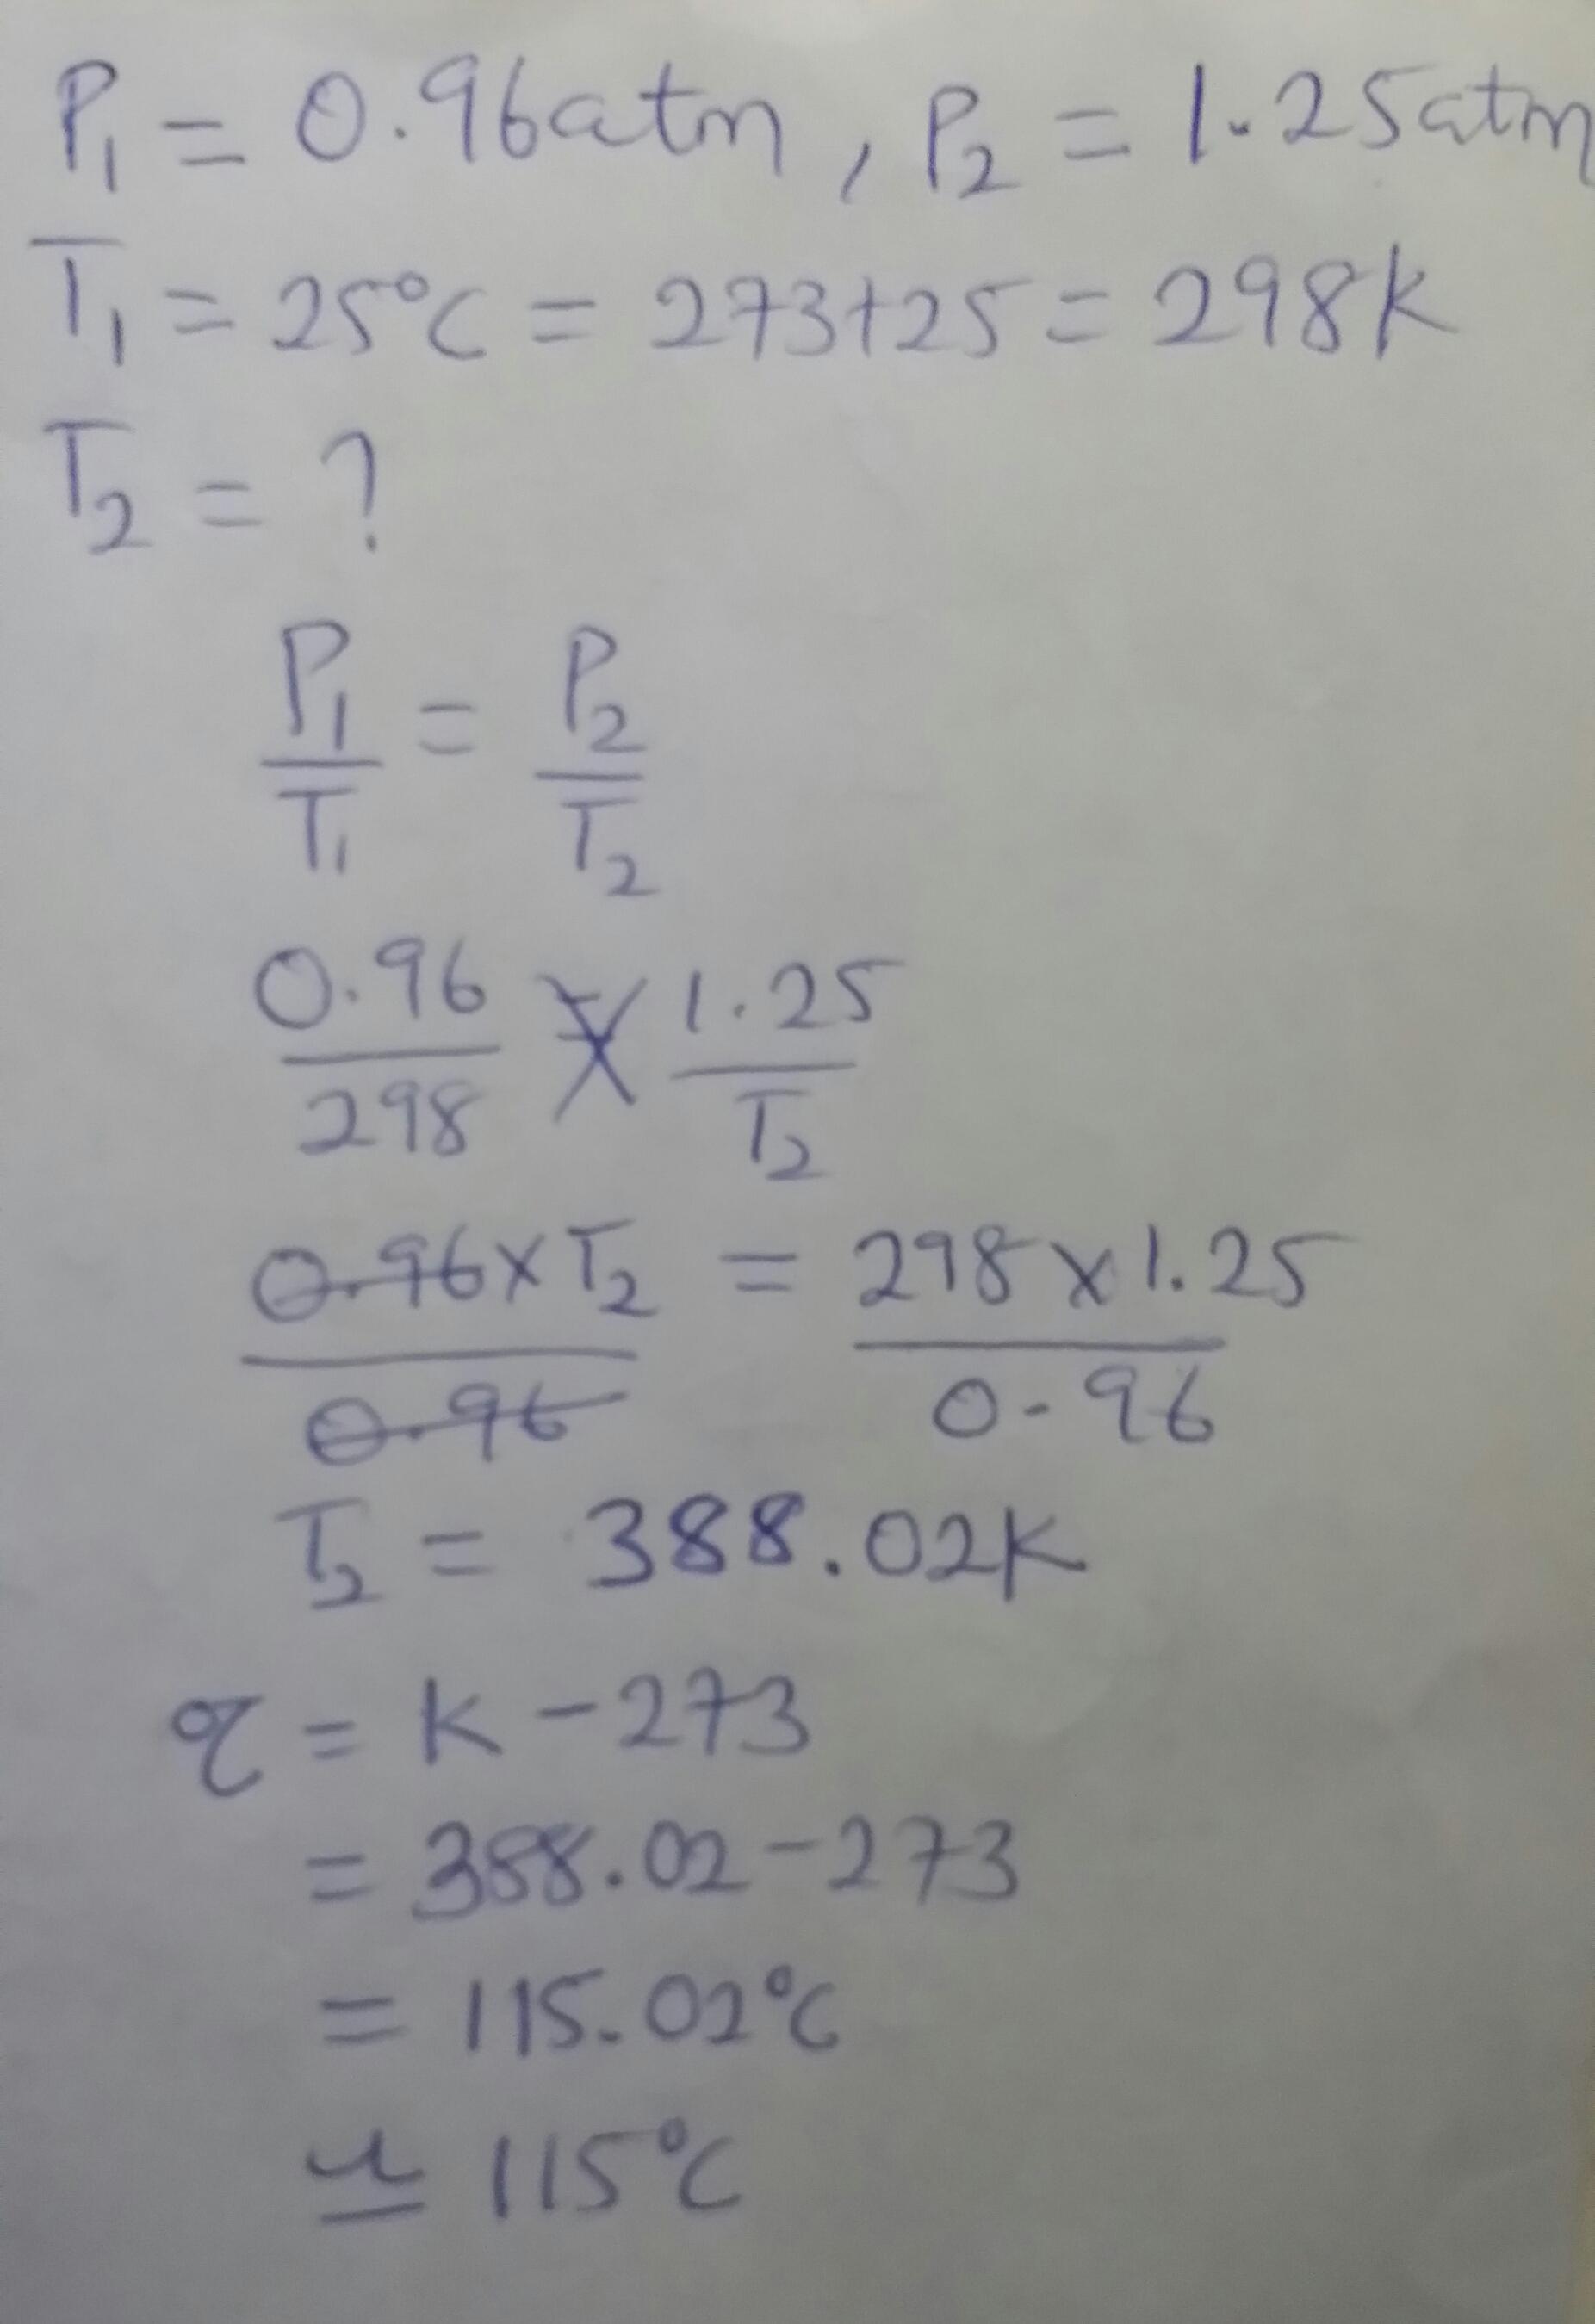 P₁ = 0.96atm, P₂ = 1.25atm
T₁ = 25°C = 273+25 = 298K
T₂ = ?
P₁/T₁ = P₂/T₂
0.96/298 = 1.25/T₂
0.96×T₂/0.96 = 298×1.25/0.96
T₂ = 388.02K
°C = K - 273
= 388.02 - 273
= 115.02°C
≃ 115°C